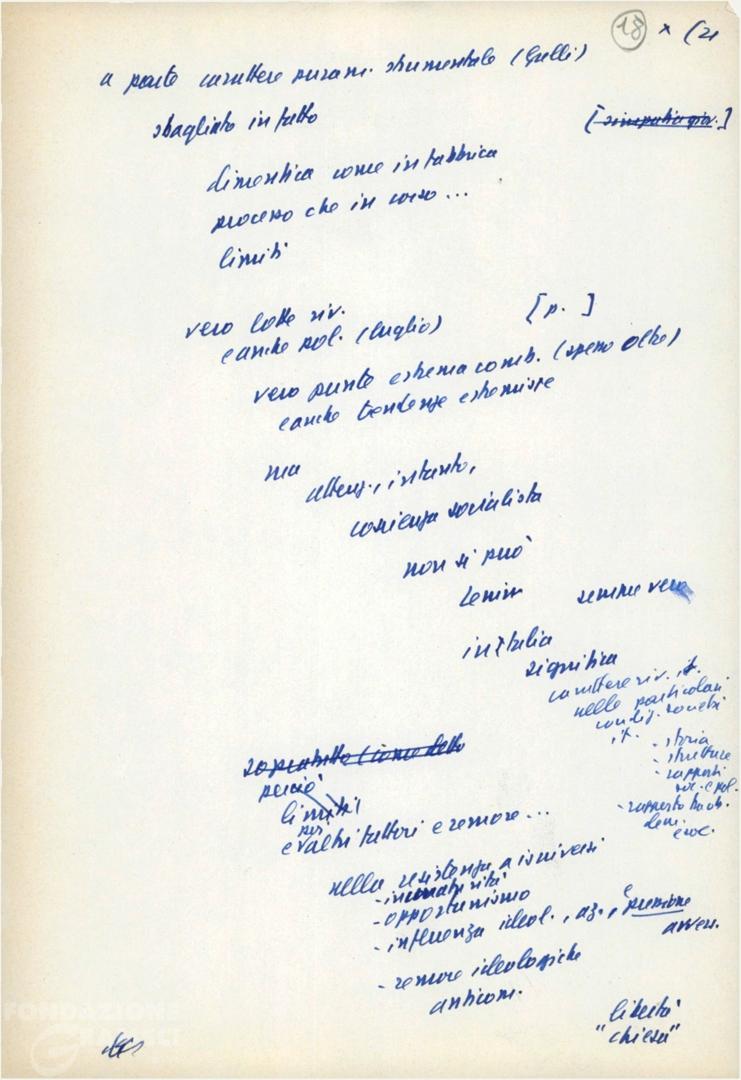 18 x (21
a parte carattere puram. strumentale (Grelli)
sbagliato in fatto
[simpatia giov.]
dimentica come in fabbrica
processo che in corso...
limiti
vero lotte riv.
[p. ]
e anche pol. (luglio)
vero punte estrema comb. (spesso oltre)
e anche tendenze estremiste
ma
attenz., intanto,
coscienza socialista
non si può
Lenin sempre vero
in Italia
significa
carattere riv. it.
nelle particolari
condiz. concr.
it. - storia
- strutture
- rapporti
soc. e pol.
- rapporto tra ob.
dem.
e soc.
soprattutto (come detto
perciò
limiti
per
e altri fattori e remore...
nella resistenza a iscriversi
- immaturità
- opportunismo
- influenza ideol., az., e pressione
avvers.
- remore ideologiche
anticom.
libertà
"chiesa"
FONDAZIONE
GRAMSCI